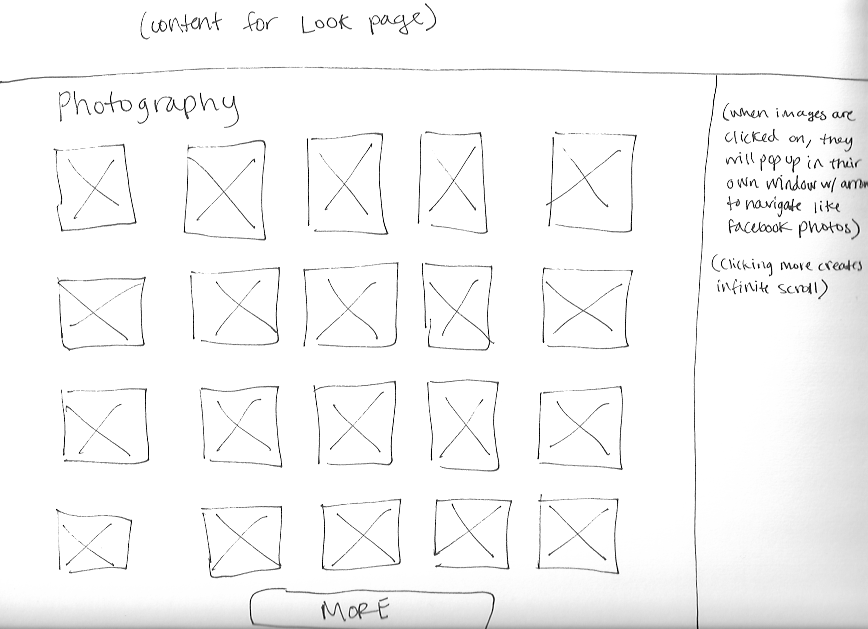 (content for Look page)
Photography
(when images are
clicked on, they
will pop up in their
own window w/ arrow
to navigate like
facebook photos)
(clicking more creates
infinite scroll)
MORE